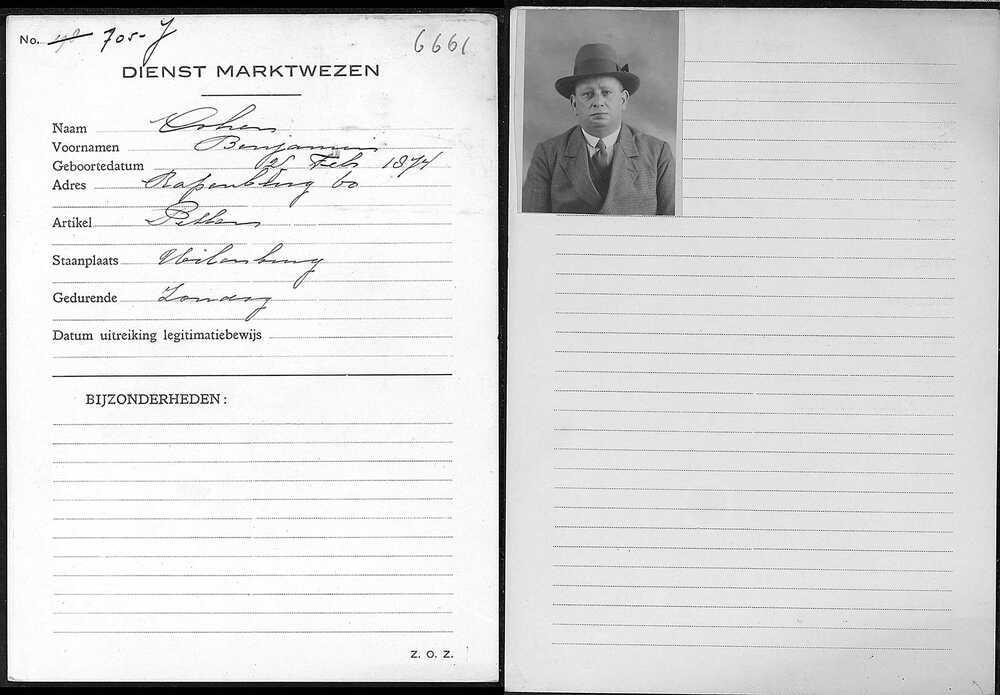 No. 705-J
6661
DIENST MARKTWEZEN
Naam Cohen
Voornamen Benjamin
Geboortedatum 25 Feb 1874
Adres Rapenburg 60
Artikel Petten
Staanplaats Uilenburg
Gedurende Zondag
Datum uitreiking legitimatiebewijs
BIJZONDERHEDEN:
Z. O. Z.